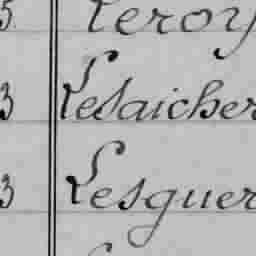 5 Leroy
3 Lesaicher
3 Lesguer